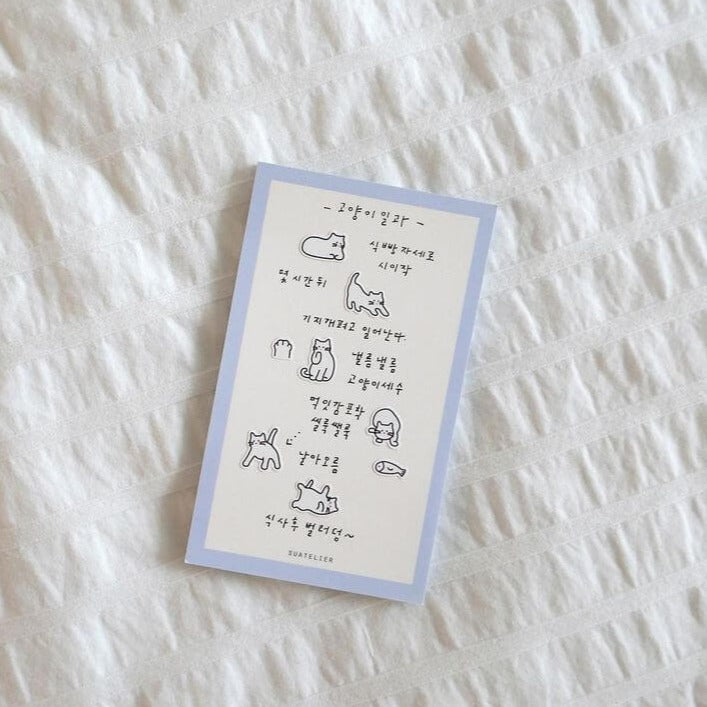 - 고양이일과 -
식빵자세로
시이작
몇시간뒤
기지개펴고 일어난다.
낼름낼름
고양이세수
먹잇감포착
씰룩쌜룩
날아오름
식사후 벌러덩~
SUATELIER